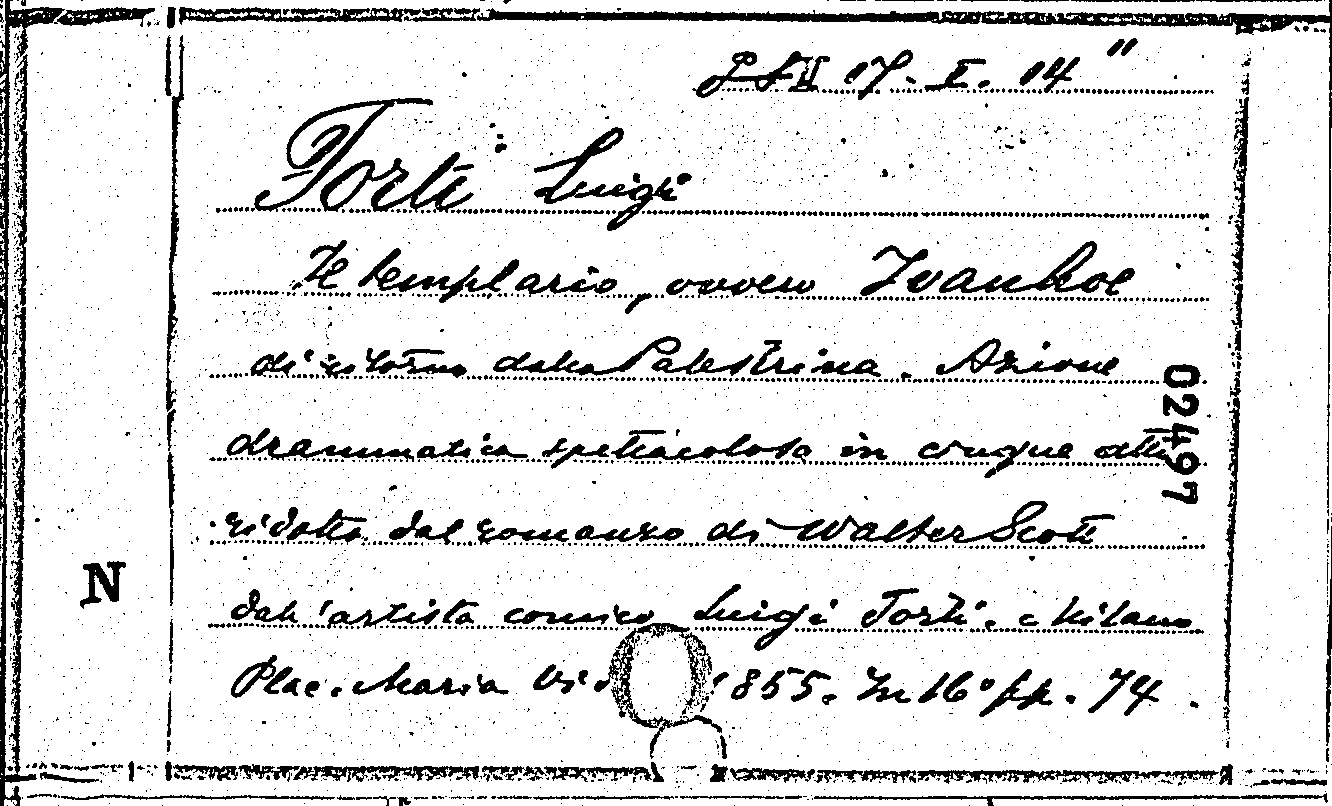 II 17. I. 14"
Forti Luigi
Il templario, ovvero Ivanhoe
di ritorno dalla Palestrina. Azione
drammatica spettacolosa in cinque atti
ridotta dal romanzo di Walter Scott
dall'artista comico Luigi Forti. Milano
Plac. Maria 1855. In 16° pp. 74.
02497
N